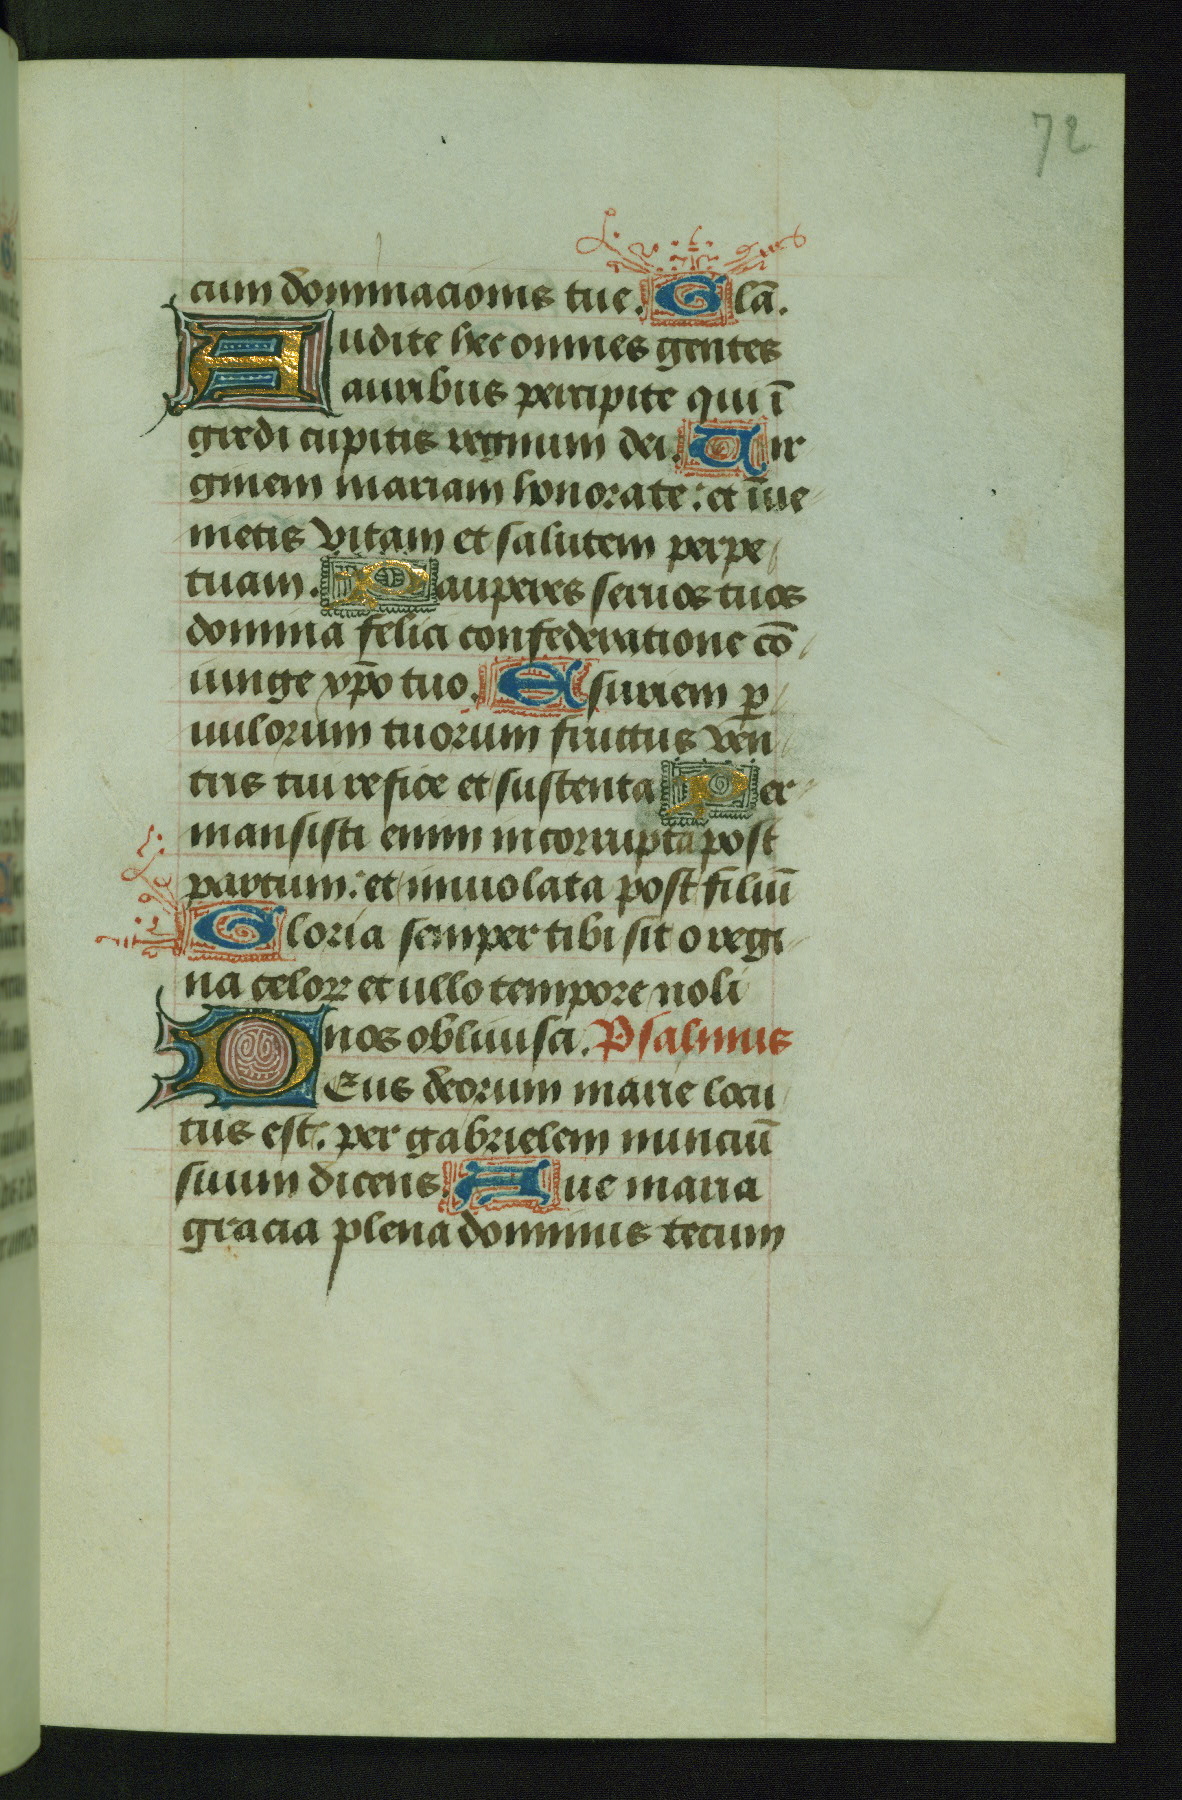 72
cium dominacionis tue. Glā.
Audite hec omnes gentes
auribus percipite qui ī
gredi cupitis regnum dei. Vir
ginem mariam honorate: et īue
nietis vitam et salutem perpe
tuam. Pauperes seruos tuos
domina felici confederatione cō
iunge xp̄o tuo. Esuriem p
uulorum tuorum fructus ven
tris tui refice et sustenta Per
mansisti enim incorrupta post
partum: et inuiolata post filiū
Gloria semper tibi sit o regi
na celoꝝ et ullo tempore noli
nos obliuisci. Psalmus
DEus deorum marie locu
tus est: per gabrielem nunciū
suum dicens. Aue maria
gracia plena dominus tecum